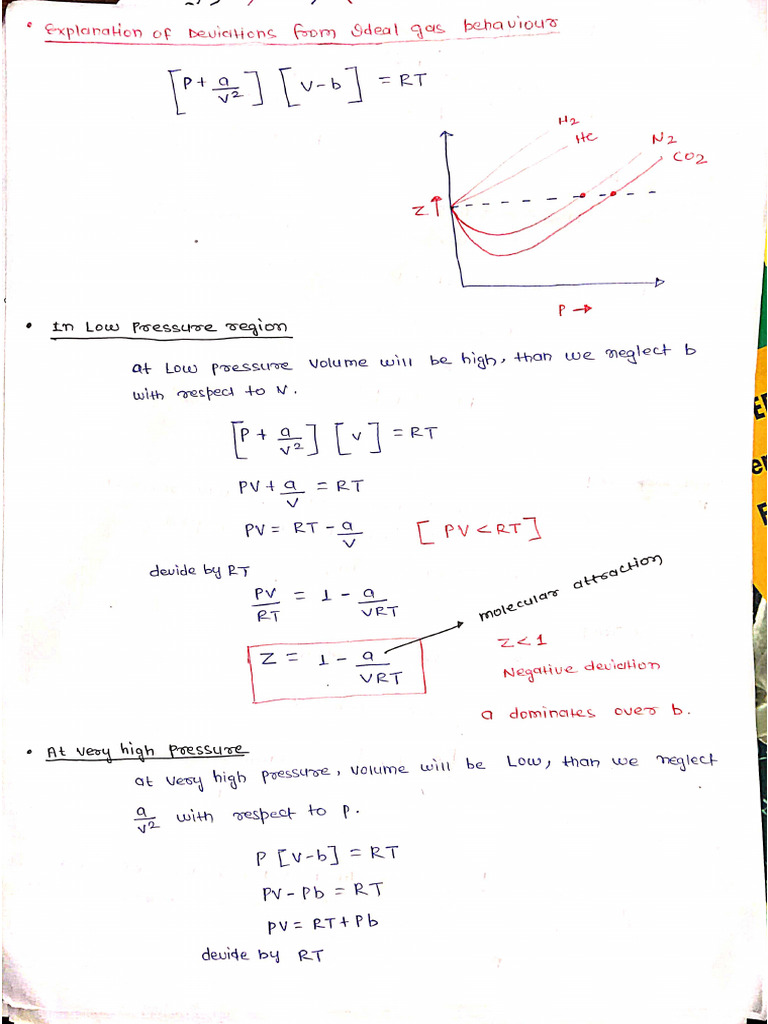 • Explanation of Deviations from Ideal gas behaviour
[P + a/v²] [v-b] = RT
H2
He
N2
CO2
Z↑
P →
• In Low Pressure region
at Low pressure volume will be high, than we neglect b
with respect to V.
[P + a/v²] [v] = RT
PV + a/v = RT
PV = RT - a/v [PV < RT]
devide by RT
PV/RT = 1 - a/VRT
molecular attraction
Z = 1 - a/VRT
Z < 1
Negative deviation
a dominates over b.
• At very high pressure
at very high pressure, volume will be Low, than we neglect
a/v² with respect to P.
P [v-b] = RT
PV - Pb = RT
PV = RT + Pb
devide by RT